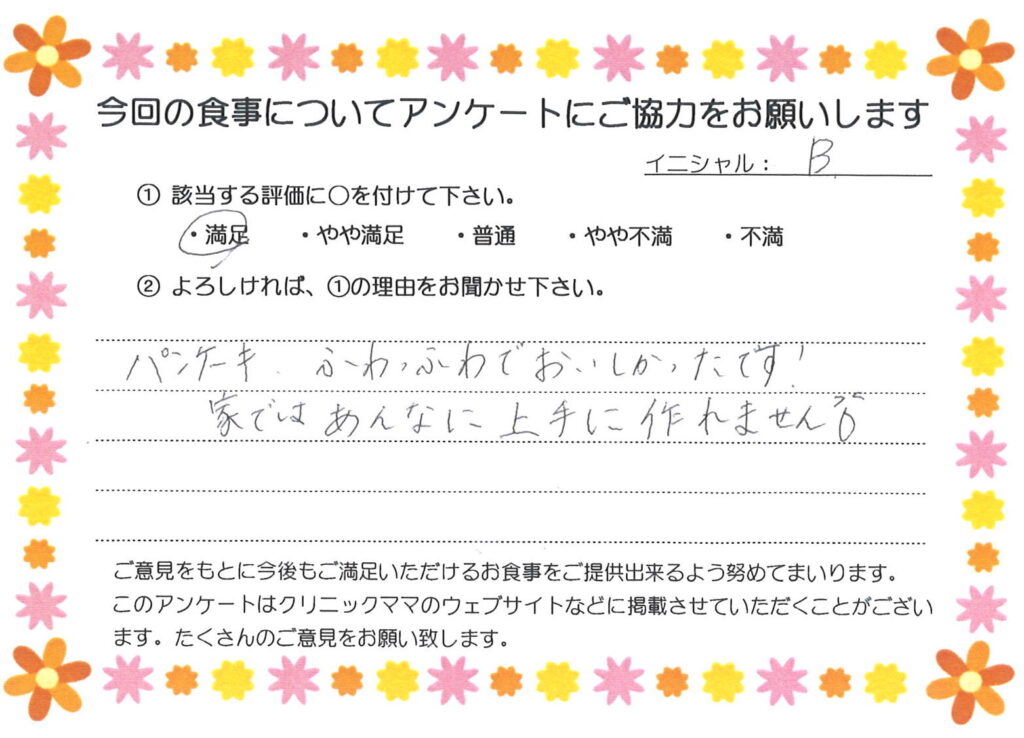 今回の食事についてアンケートにご協力をお願いします
イニシャル： B
① 該当する評価に○を付けて下さい。
・満足 ・やや満足 ・普通 ・やや不満 ・不満
② よろしければ、①の理由をお聞かせ下さい。
パンケーキ、ふわっふわでおいしかったです！
家ではあんなに上手に作れません
ご意見をもとに今後もご満足いただけるお食事をご提供出来るよう努めてまいります。
このアンケートはクリニックママのウェブサイトなどに掲載させていただくことがござい
ます。たくさんのご意見をお願い致します。